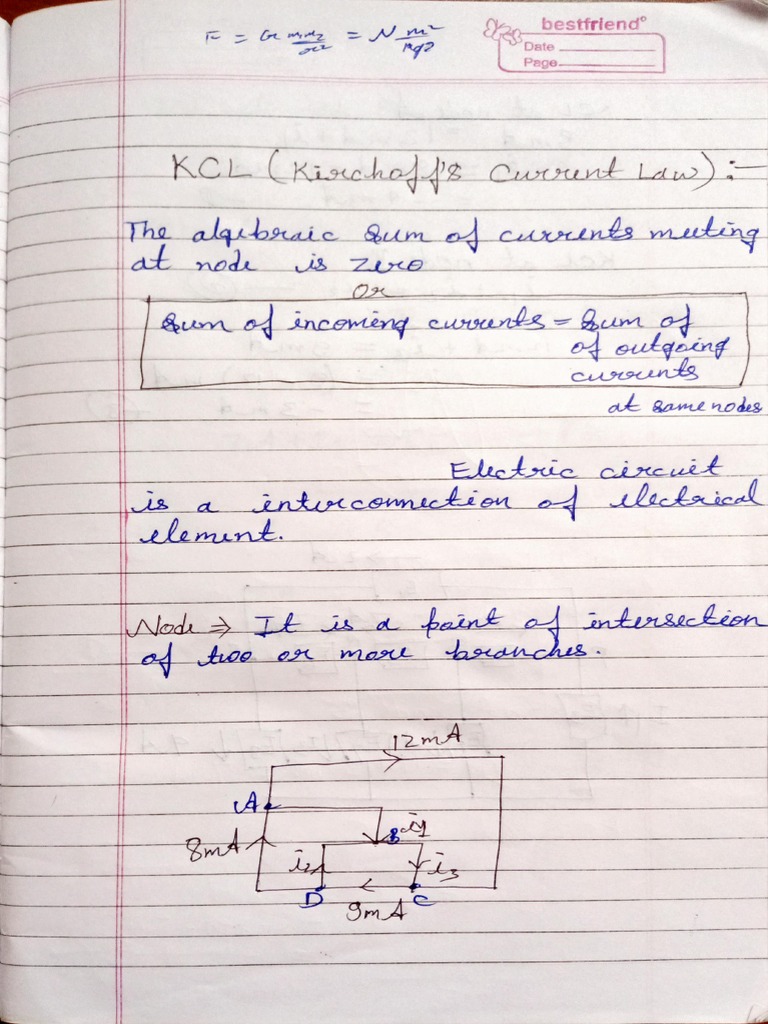 F = G m₁m₂/r² = N m²/kg²
bestfriend
Date
Page
KCL (Kirchoff's Current Law) :-
The algebraic sum of currents meeting
at node is zero
Or
Sum of incoming currents = Sum of
of outgoing
currents
at same nodes
Electric circuit
is a interconnection of electrical
element.
Node ⇒ It is a point of intersection
of two or more branches.
12mA
A
8mA
B
i1
i2
i3
D
9mA
C